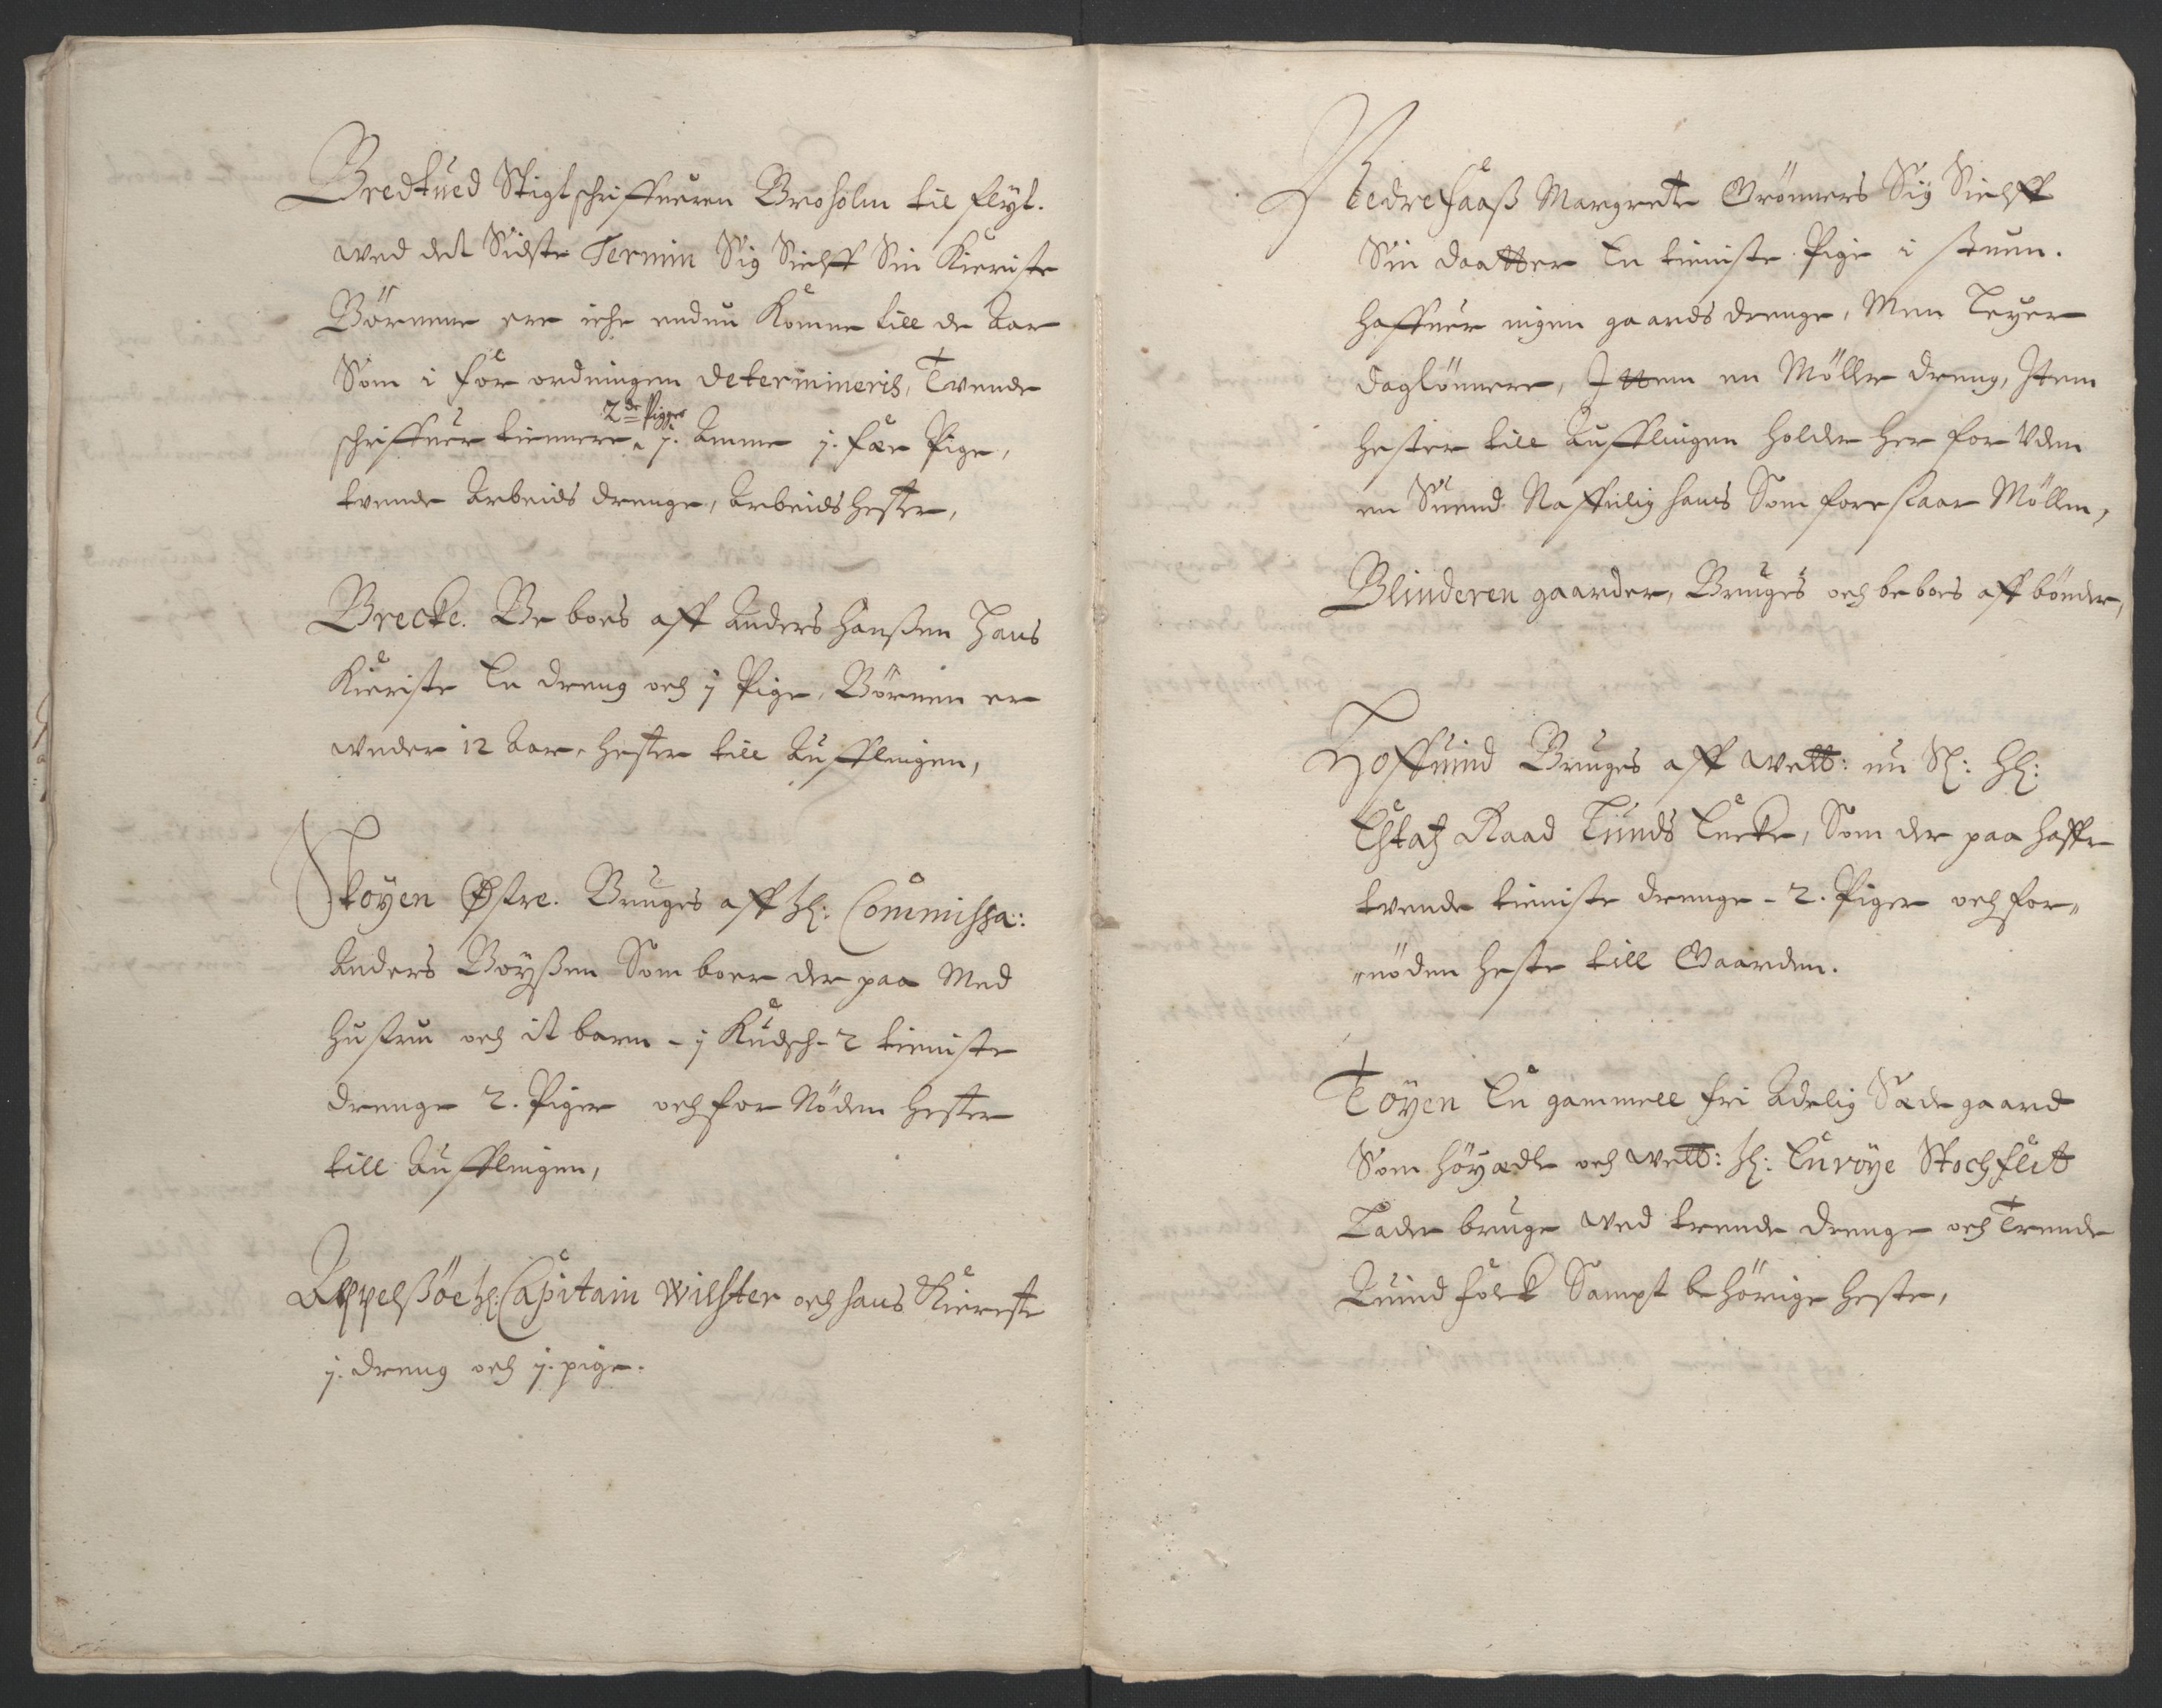 Bredtued Stigtschriffueren Broholm til flyt.
wed det Sidste Termin Sig Sielff Sin Kieriste
Börnene ere iche endnu Komne till de Aar
Som i for ordningen determineris, Tvende
2de Piger
schriffuer tiennere, j. Amme j. fæe Pige,
tvende Arbeids drenge, Arbeids hester,
Brecke. Be boes aff Anders Hanßen Hans
Kieriste En dreng och j Pige, Börnen er
under 12 Aar, hester till Aufflingen,
Skoyen Østre. Bruges aff H: Commissa:
Anders Boyßen Som boer der paa Med
hustru och it barn - j Kudsch - 2 tieniste
drenge 2. Piger och for Nöden hester
till Aufflingen,
Appelßöe H: Capitain Wilster och hans Kiereste
j. dreng och j. pige.
Bedrehaaß Margrete Grönners Sig Sielff
Sin daatter En tieniste Pige i stuen.
haffuer ingen gaards drenge, Men Leyer
daglönnere, Ittem en Möller dreng, Item
hester till Aufflingen holder her for Uden
en Suend Naffnlig hans Som forestaar Möllen,
Blinderen gaarder, Bruges och beboes aff bönder,
Hoffuind Bruges aff welb: nu Sl: Hl:
Etatz Raad Tünds Encke, Som der paa haffr
tvende tieniste drenge - 2. Piger och for„
„nöden heste till Gaarden.
Töyen En gammell fri Adelig Sæde gaard
Som höyædle och welb: H: Enröye Stochflet
Lader bruge wed trende drenge och Trende
Quind folck Sampt behörige heste,